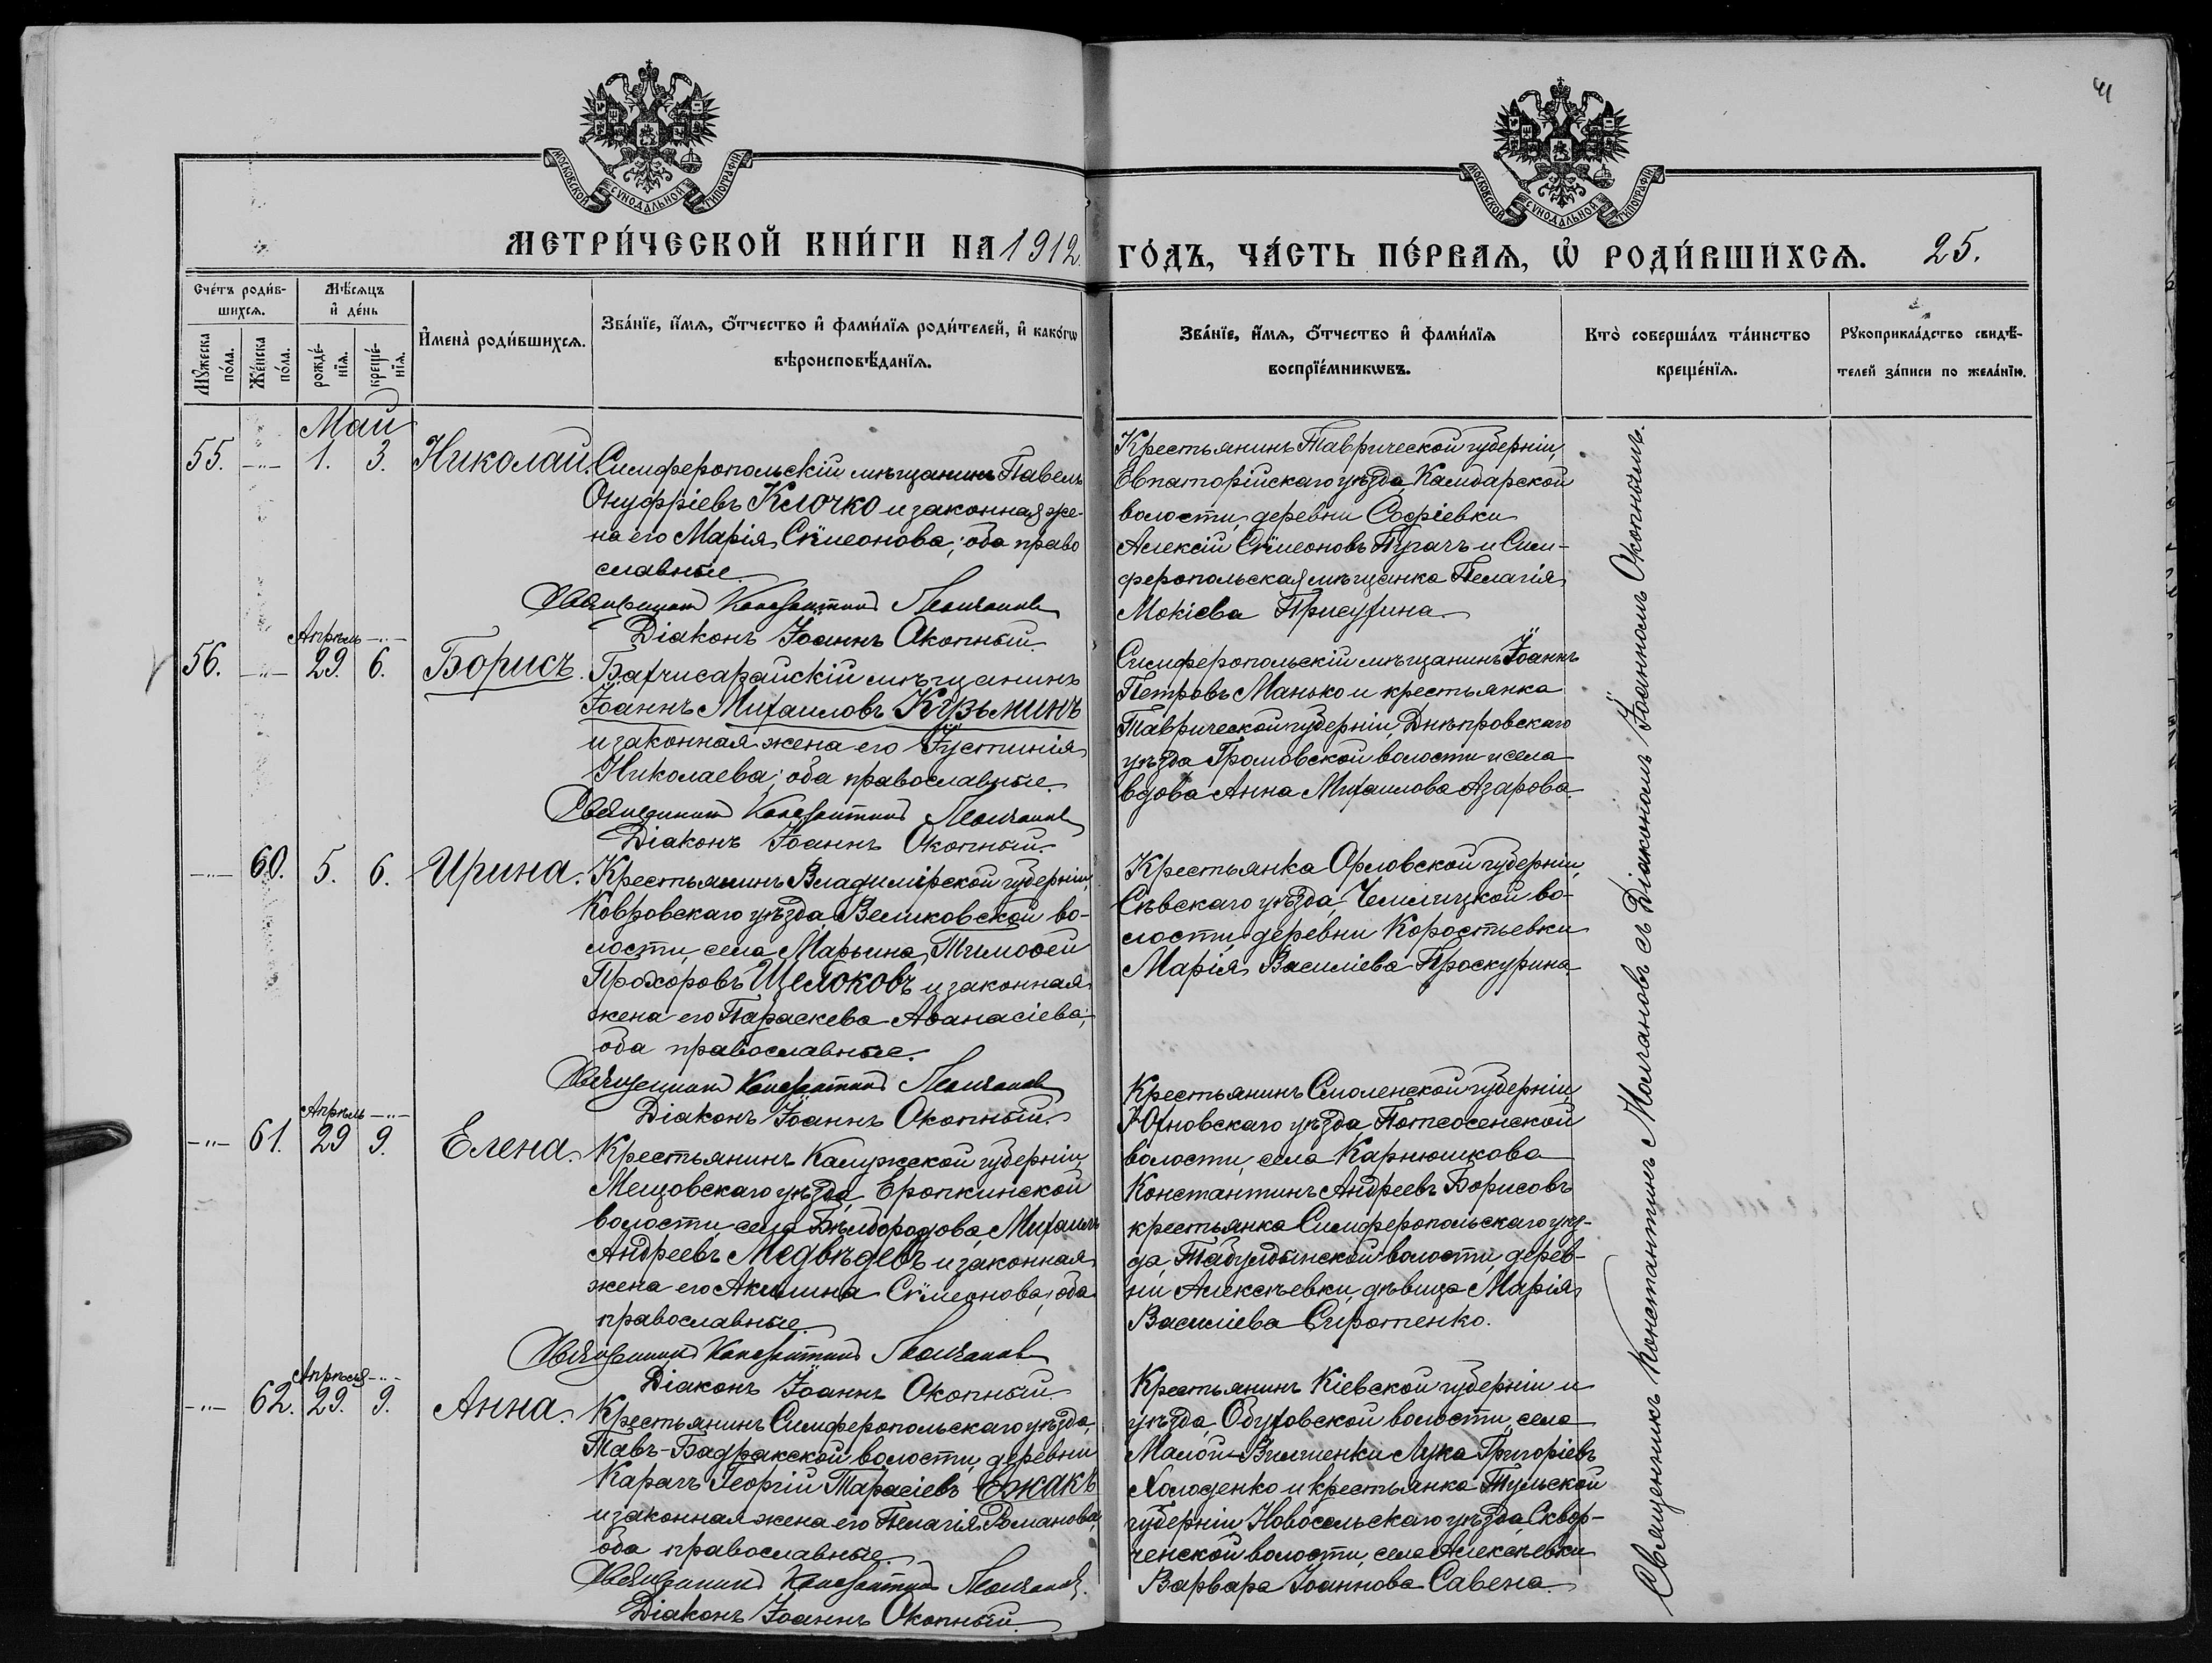 41
МОСКОВСКОЙ СѴНОДАЛЬНОЙ ТИПОГРАФІИ
МОСКОВСКОЙ СѴНОДАЛЬНОЙ ТИПОГРАФІИ
МЕТРИ́ЧЕСКОЙ КНИ́ГИ НА 1912.
ГО́ДЪ, ЧА́СТЬ ПЕ́РВАѦ, Ѡ҆ РОДИ́ВШИХСѦ. 25.
Сче́тъ роди́в-
шихсѧ.
Мꙋ́жеска по́ла.
Же́нска по́ла.
Мѣ́сѧцъ и҆ де́нь
рожде́-
нїѧ.
креще́-
нїѧ.
И҆мена̀ роди́вшихсѧ.
Зва́нїе, и҆́мѧ, ѻ҆́тчество и҆ фами́лїѧ роди́телей, и҆ како́гѡ
вѣроисповѣ́данїѧ.
Зва́нїе, и҆́мѧ, ѻ҆́тчество и҆ фами́лїѧ
воспрїе́мникѡвъ.
Кто̀ соверша́лъ та́инство
креще́нїѧ.
Рꙋкоприкла́дство свидѣ́-
телей за́писи по жела́нїю.
Май
55. -"- 1. 3. Николай.
Симферопольскій мѣщанинъ Павелъ
Онуфріевъ Клочко и законная же-
на его Марія Сѵмеонова; оба право
славные.
Священникъ Константинъ Молчановъ
Діаконъ Іоаннъ Окопный.
Крестьянинъ Таврической губерніи,
Евпаторійскаго уѣзда, Камбарской
волости, деревни Софіевки
Алексій Сѵмеоновъ Пугачъ и Сим-
феропольская мѣщанка Пелагія
Мокіева Присухина.
Апрѣль -"-
56. -"- 29. 6. Борисъ.
Бахчисарайскій мѣщанинъ
Іоаннъ Михаиловъ Кузьминъ
и законная жена его Іустинія
Николаева; оба православные.
Священникъ Константинъ Молчановъ
Діаконъ Іоаннъ Окопный.
Симферопольскій мѣщанинъ Іоаннъ
Петровъ Манько и крестьянка
Таврической губерніи, Днѣпровскаго
уѣзда Громовской волости и села
вдова Анна Михаилова Азарова.
-"- 60. 5. 6. Ирина.
Крестьянинъ Владимірской губерніи,
Ковровскаго уѣзда, Великовской во-
лости, села Марьина, Тимоѳей
Прохоровъ Щелоковъ и законная
жена его Параскева Аѳанасіева;
оба православные.
Священникъ Константинъ Молчановъ
Діаконъ Іоаннъ Окопный.
Крестьянка Орловской губерніи,
Сѣвскаго уѣзда, Чемлыцкой во-
лости, деревни Коростьевки
Марія Василіева Проскурина.
Апрѣль -"-
-"- 61. 29 9. Елена.
Крестьянинъ Калужской губерніи,
Мещовскаго уѣзда, Еропкинской
волости, села Бѣлбородова, Михаилъ
Андреевъ Медвѣдевъ и законная
жена его Акилина Сѵмеонова, оба
православные.
Священникъ Константинъ Молчановъ
Діаконъ Іоаннъ Окопный.
Крестьянинъ Смоленской губерніи
Юхновскаго уѣзда,
волости, села Карнюшкова
Константинъ Андреевъ Борисовъ
крестьянка Симферопольскаго уѣз-
да, Табулдынской волости, дерев-
ни Алексѣевки, дѣвица Марія
Василіева Сиротенко.
Апрѣля -"-
-"- 62. 29. 9. Анна.
Крестьянинъ Симферопольскаго уѣзда,
Тавъ-Бадракской волости, деревни
Карачъ Георгій Тарасіевъ Ежакъ
и законная жена его Пелагія Романова,
оба православные.
Священникъ Константинъ Молчановъ.
Діаконъ Іоаннъ Окопный.
Крестьянинъ Кіевской губерніи и
уѣзда, Обуховской волости, села
Малой-Вильшенки Лука Григоріевъ
Холоденко и крестьянка Тульской
губерніи Новосельскаго уѣзда, Сквор-
ченской волости, села Алексѣевки
Варвара Іоаннова Савена.
Священникъ Константинъ Молчановъ съ Діакономъ Іоанномъ Окопнымъ.